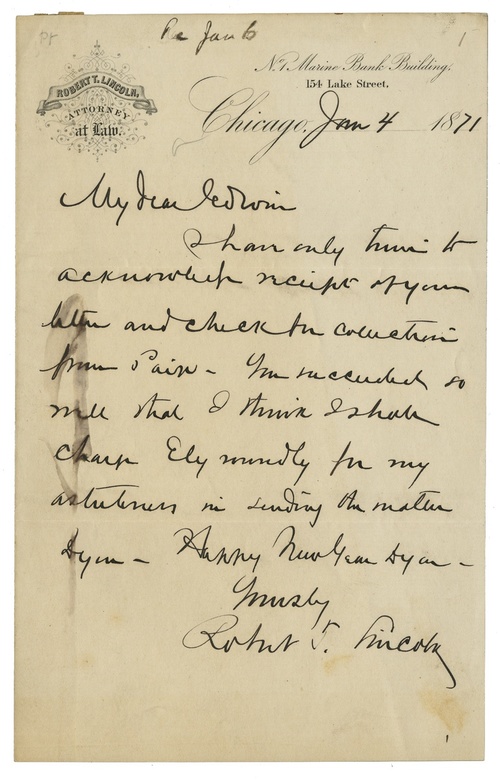 Jan 6
1
ROBERT T. LINCOLN,
ATTORNEY
at Law.
No. 1 Marine Bank Building,
154 Lake Street.
Chicago, Jan 4 1871
My dear Edwin
I have only time to
acknowledge receipt of your
letter and check for collection
from Paige – You succeeded so
well that I think I shall
charge Ely roundly for my
astuteness in sending the matter
to you – Happy New Year to you –
Yours ly
Robert T. Lincoln